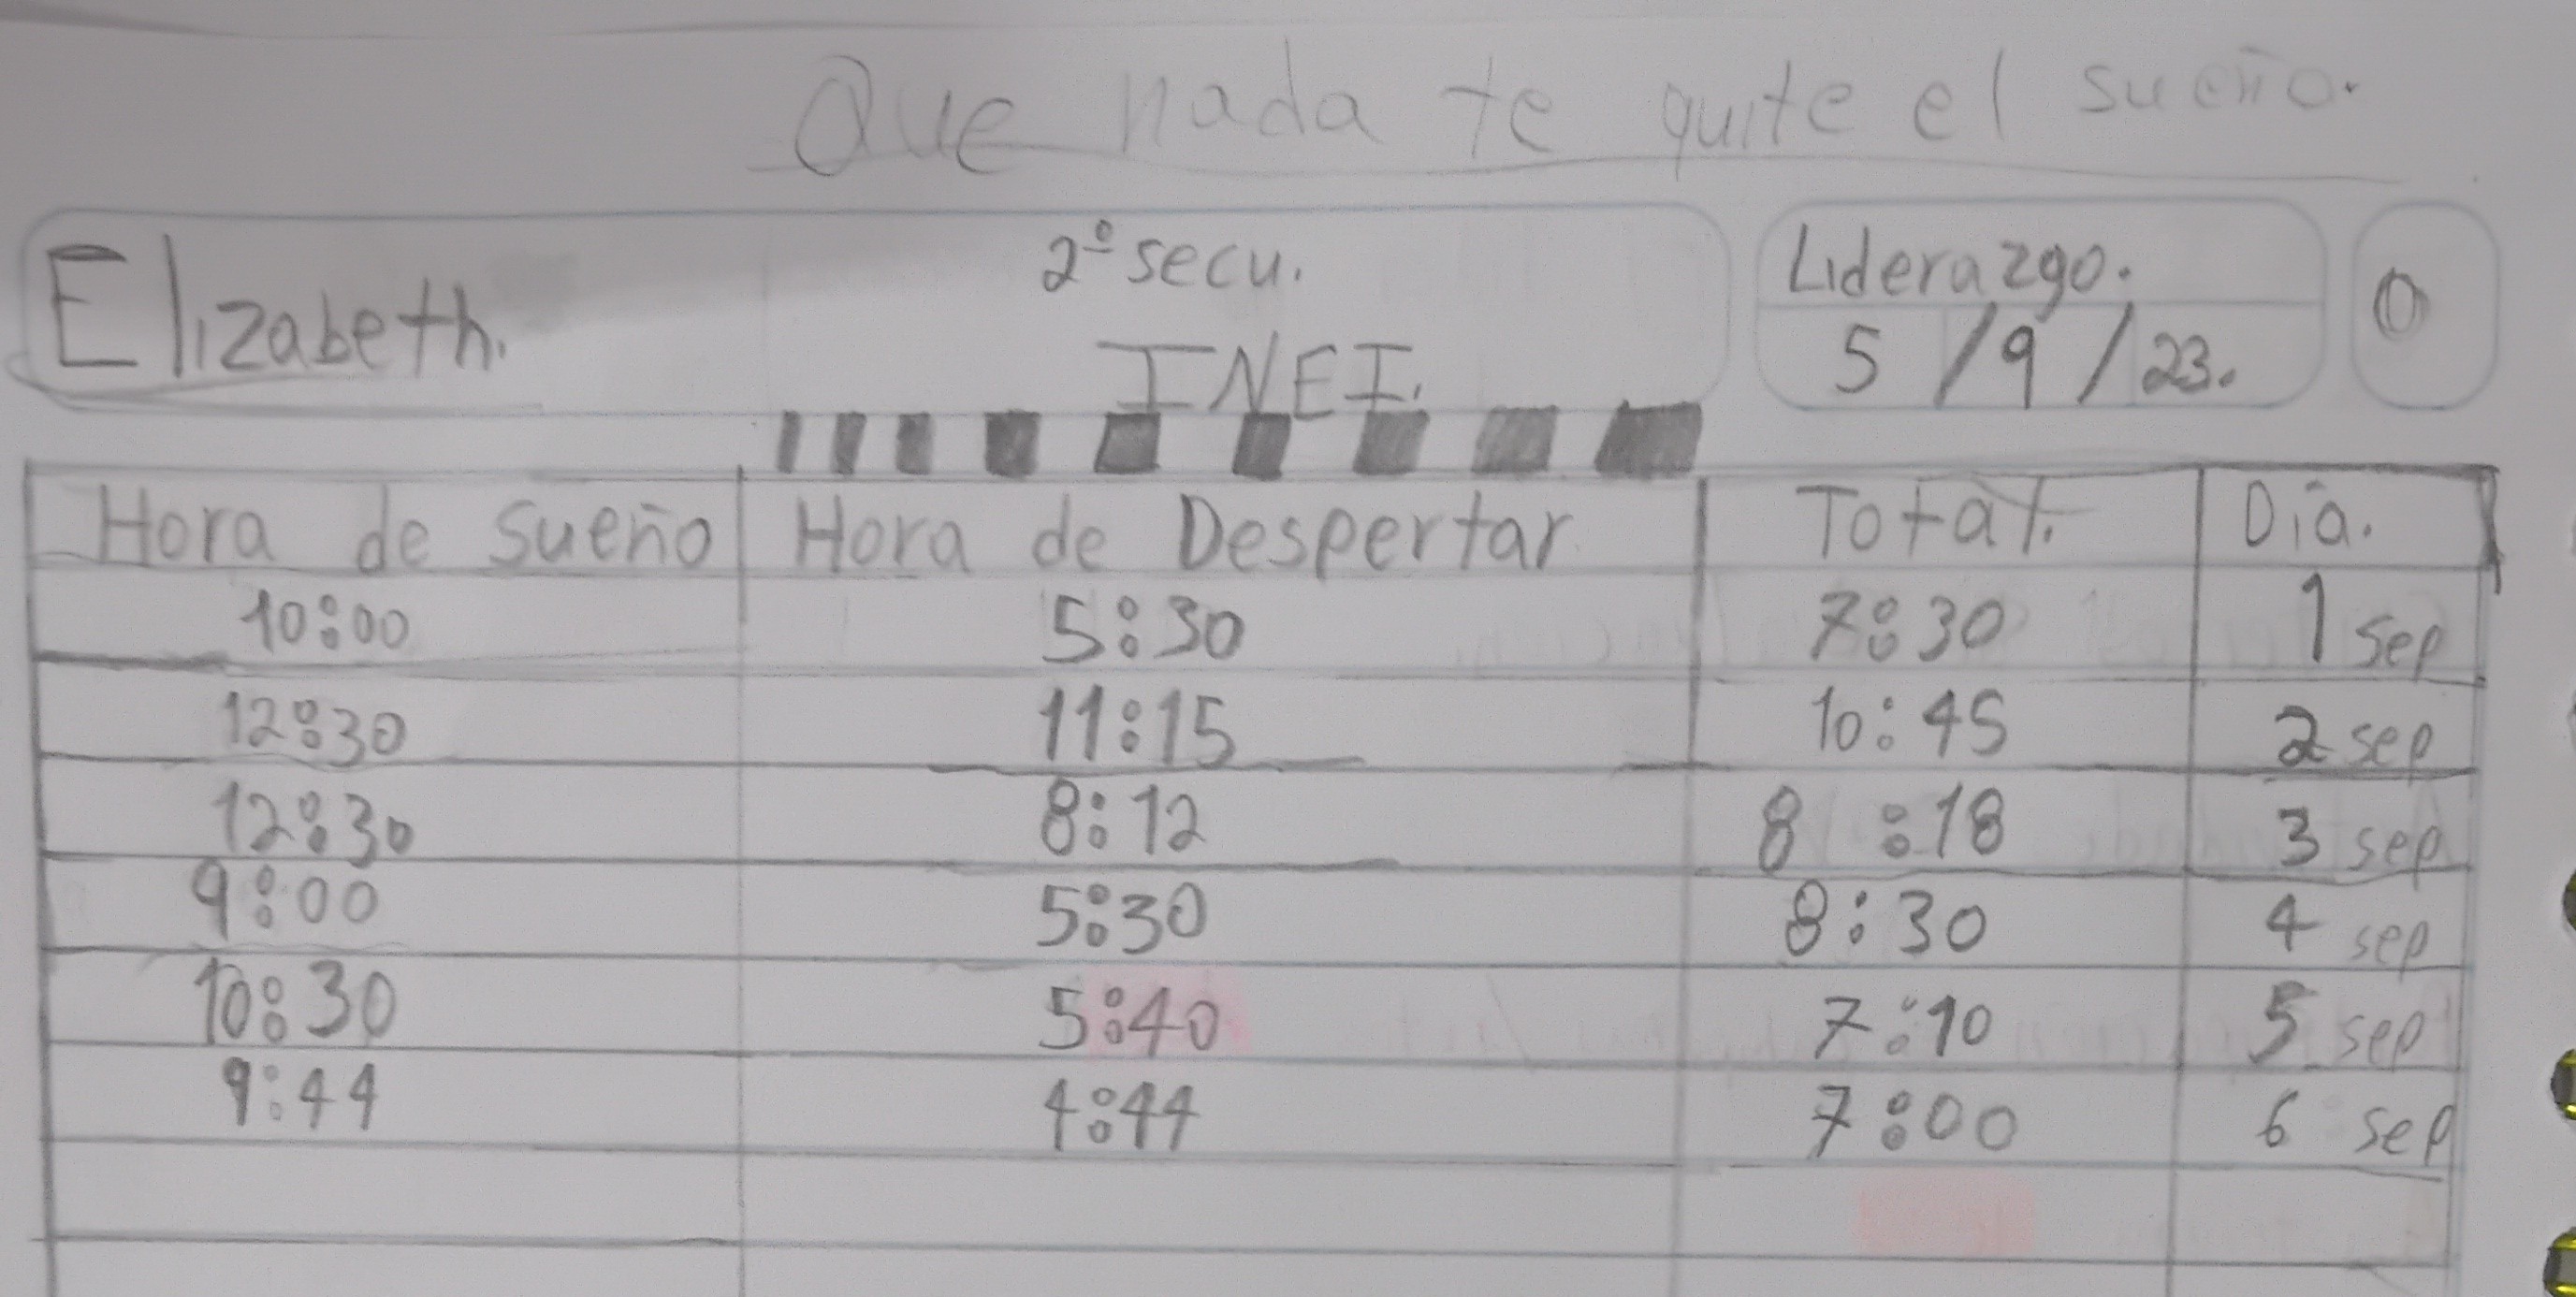 Que nada te quite el sueño.
Elizabeth. 2º secu. Liderazgo. O
INEI. 5/9/23.
Hora de sueño Hora de Despertar Total. Día.
10:00 5:30 7:30 1 sep
12:30 11:15 10:45 2 sep
12:30 8:12 8:18 3 sep
9:00 5:30 8:30 4 sep
10:30 5:40 7:10 5 sep
9:44 4:44 7:00 6 sep